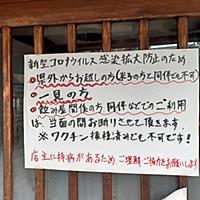 新型コロナウイルス感染拡大防止のため
・県外からお越しの方(来店の方と同伴も不可)
・一見の方
・飲み屋関係の方同伴などでのご利用
は、当面の間お断りさせて頂きます
※ワクチン接種済みでも不可です!
店主に持病があるため ご理解ご協力をお願いします